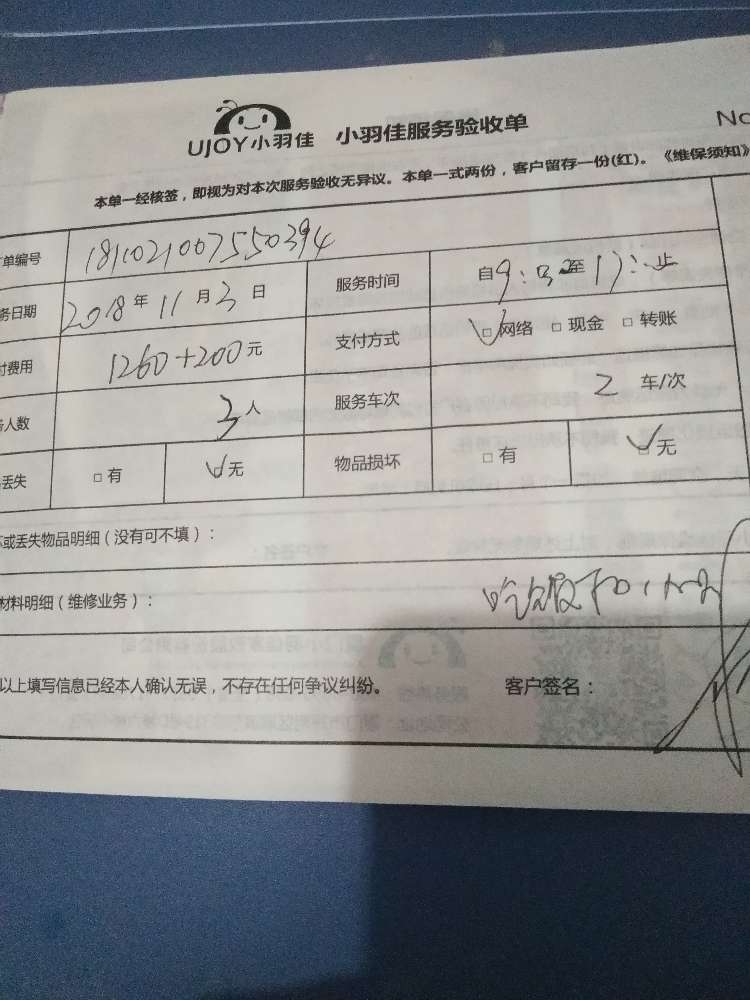 UJOY小羽佳 小羽佳服务验收单 No
本单一经核签，即视为对本次服务验收无异议。本单一式两份，客户留存一份(红)。《维保须知》
单编号 181102100755 0394
务日期 2018年11月3日 服务时间 自9: 至17: 止
费用 1260+200元 支付方式 ☑网络 □现金 □转账
人数 3人 服务车次 2车/次
丢失 □有 ☑无 物品损坏 □有 ☑无
或丢失物品明细（没有可不填）：
材料明细（维修业务）：
以上填写信息已经本人确认无误，不存在任何争议纠纷。 客户签名：